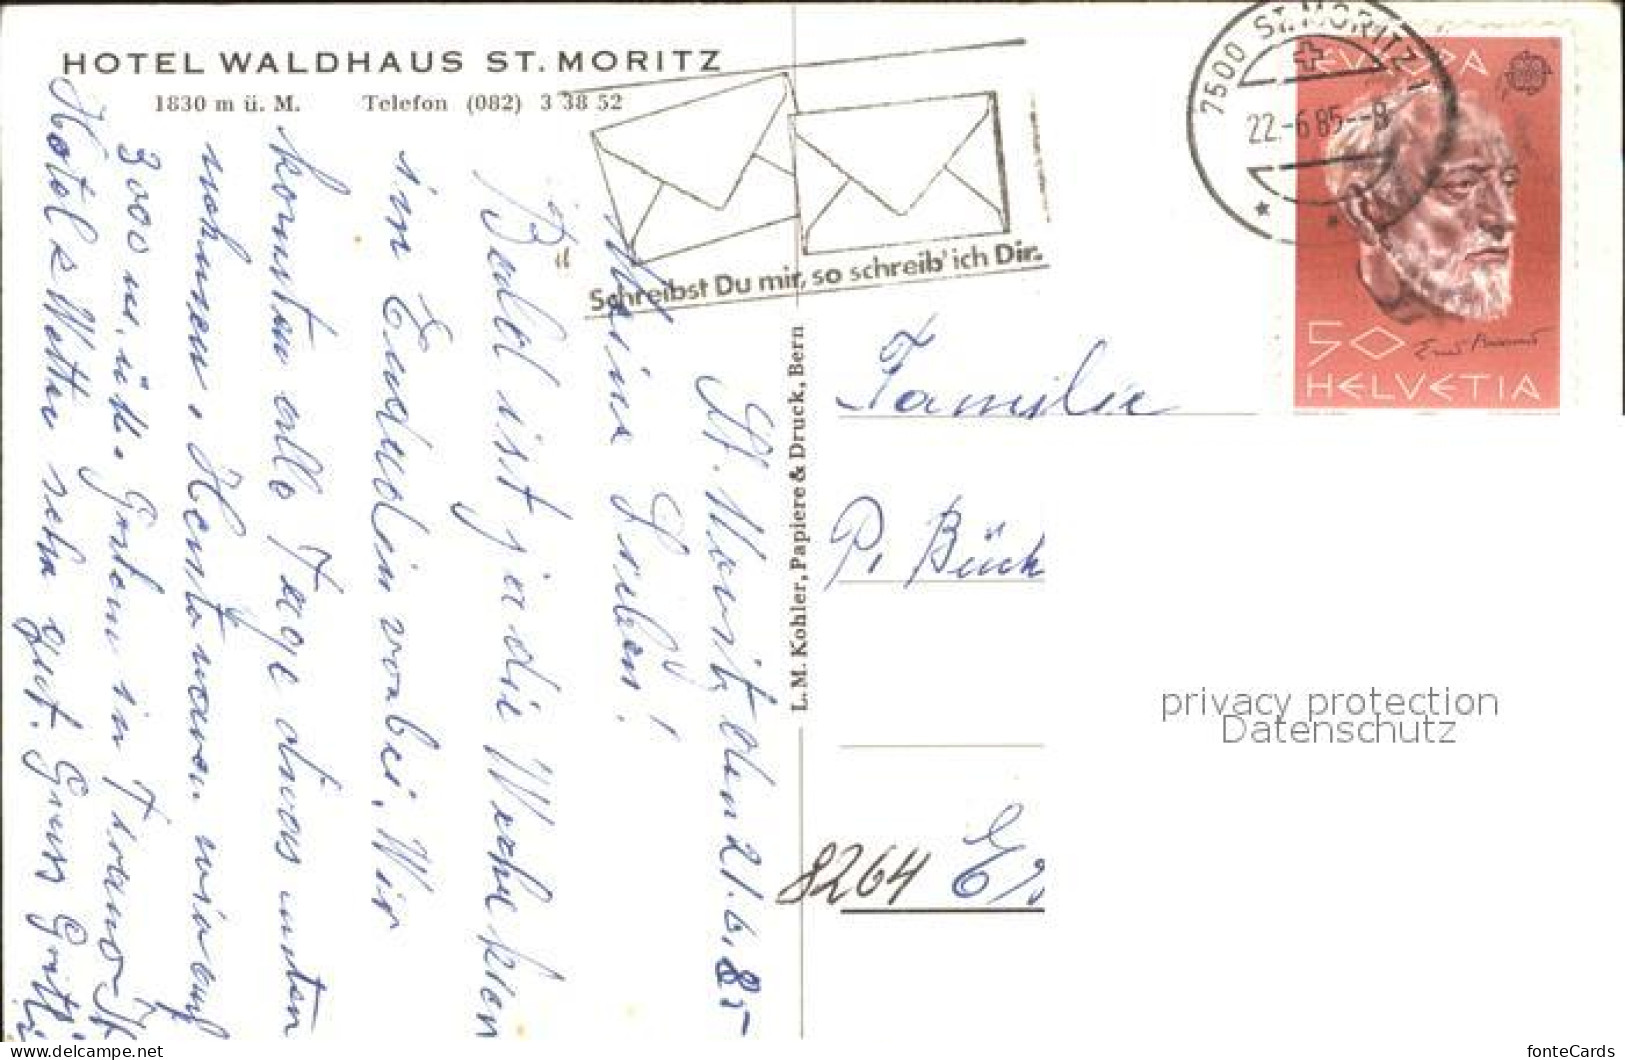 HOTEL WALDHAUS ST. MORITZ
1830 m ü. M. Telefon (082) 3 38 52
Schreibst Du mir, so schreib' ich Dir.
7500 ST. MORITZ 1
22.-6.85--8
EUROPA
50
HELVETIA
L. M. Kohler, Papiere & Druck, Bern
St. Moritz den 21.6.85
Meine Lieben!
Bald ist ja die Woche
im Engadin vorbei. Wir
konnten alle Tage etwas unten
nehmen. Heute waren wir auf
3000 m. ü. M. Gestern in
Hotel & Wetter sehr gut. Gruss
Familie
P. Büch
8264 E
privacy protection
Datenschutz
hotte-collections.com
fonteCards